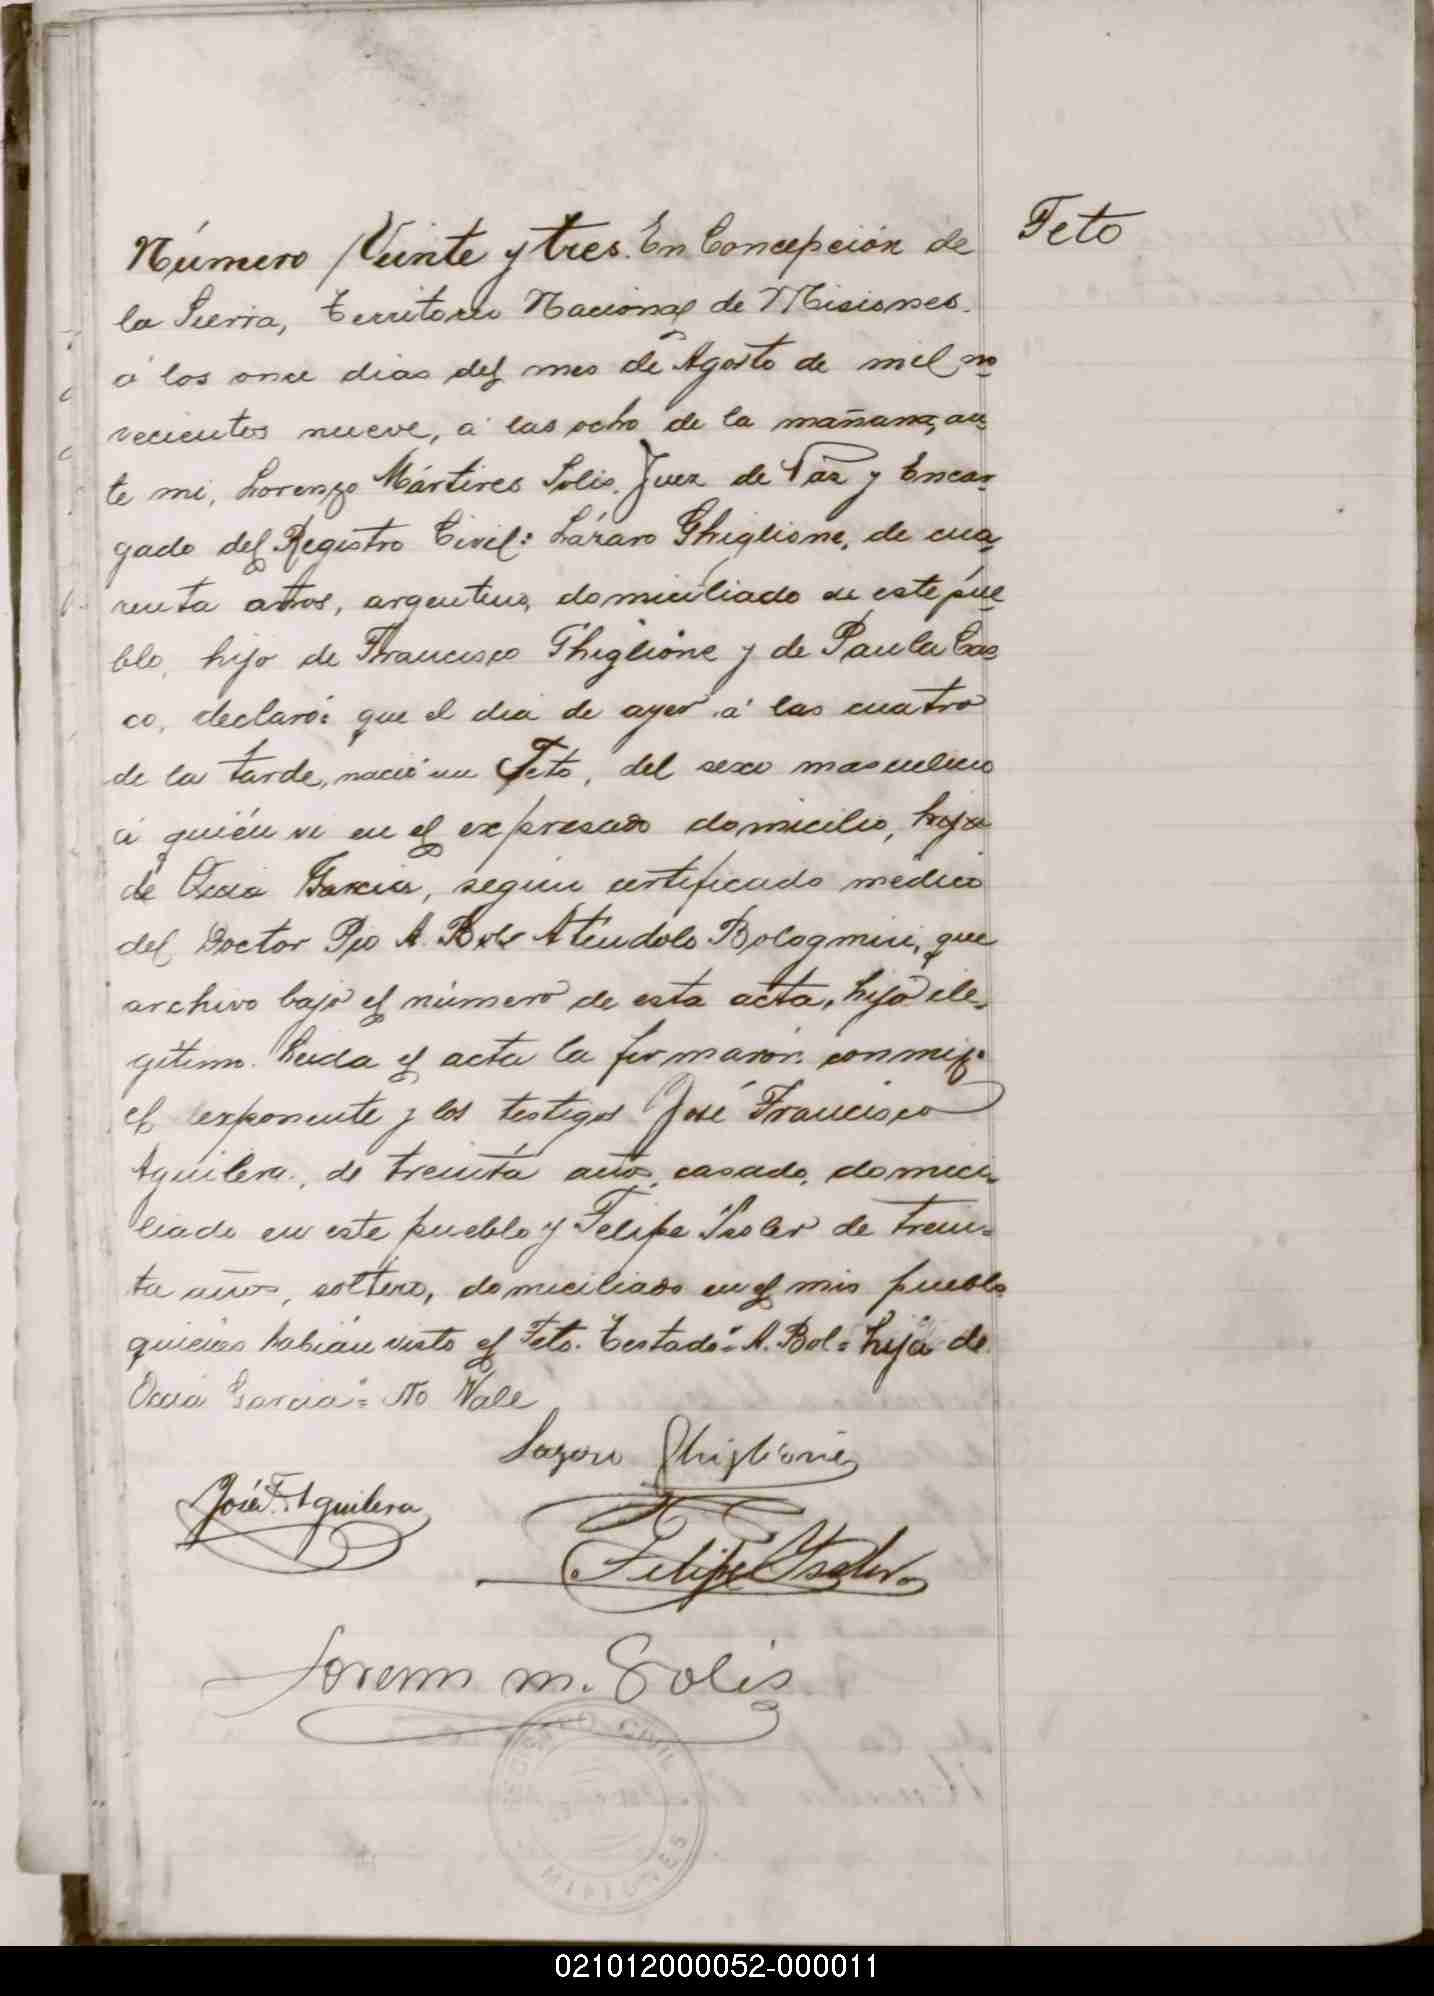 Feto
Número Veinte y tres. En Concepción de
la Sierra, Territorio Nacional de Misiones.
á los once dias del mes de Agosto de mil no=
vecientos nueve, á las ocho de la mañana, an=
te mi, Lorenzo Mártires Solis, Juez de Paz y Encar=
gado del Registro Civil: Lázaro Ghiglione, de cua=
renta años, argentino, domiciliado en este pue=
blo, hijo de Francisco Ghiglione y de Paula Cas=
co, declaró: que el dia de ayer á las cuatro
de la tarde, nació un Feto, del sexo masculino
á quién vi en el expresado domicilio, hijo
de Garcia, según certificado médico
del Doctor Pio A. Bol Aténdolo Bologmini, que
archivo bajo el número de esta acta, hijo ile=
gitimo. Leida el acta la firmarón conmigo
el exponente y los testigos José Francisco
Aguilera, de treinta años, casado, domici=
liado en este pueblo y Felipe Ysoler de trein=
ta años, soltero, domiciliado en el mis pueblo
quienes habián visto el Feto. Testado "A. Bol = hija de
Garcia" = No Vale
Lazaro Ghiglione
José F. Aguilera
Felipe Ysoler
Lorenzo M. Solis
REGISTRO CIVIL
MISIONES
021012000052-000011